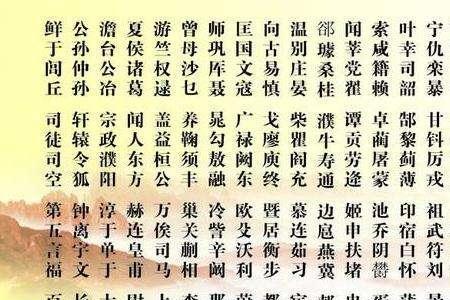 宁仇栾暴 甘钭厉戎 祖武符刘
叶幸司韶 郜黎蓟薄 印宿白怀
索咸籍赖 卓蔺屠蒙 池乔阴鬱
闻莘党翟 谭贡劳逄 姬申扶堵
郤璩桑桂 濮牛寿通 边扈燕冀
温别庄晏 柴瞿阎充 慕连茹习
向古易慎 戈廖庾终 暨居衡步
匡国文寇 广禄阙东 欧殳沃利
师巩厍聂 晁勾敖融 冷訾辛阚
曾母沙乜 养鞠须丰 巢关蒯相
游竺权逯 盖益桓公 万俟司马
夏侯诸葛 闻人东方 赫连皇甫
澹台公冶 宗政濮阳 淳于单于
公孙仲孙 轩辕令狐 钟离宇文
鲜于闾丘 司徒司空 第五言福